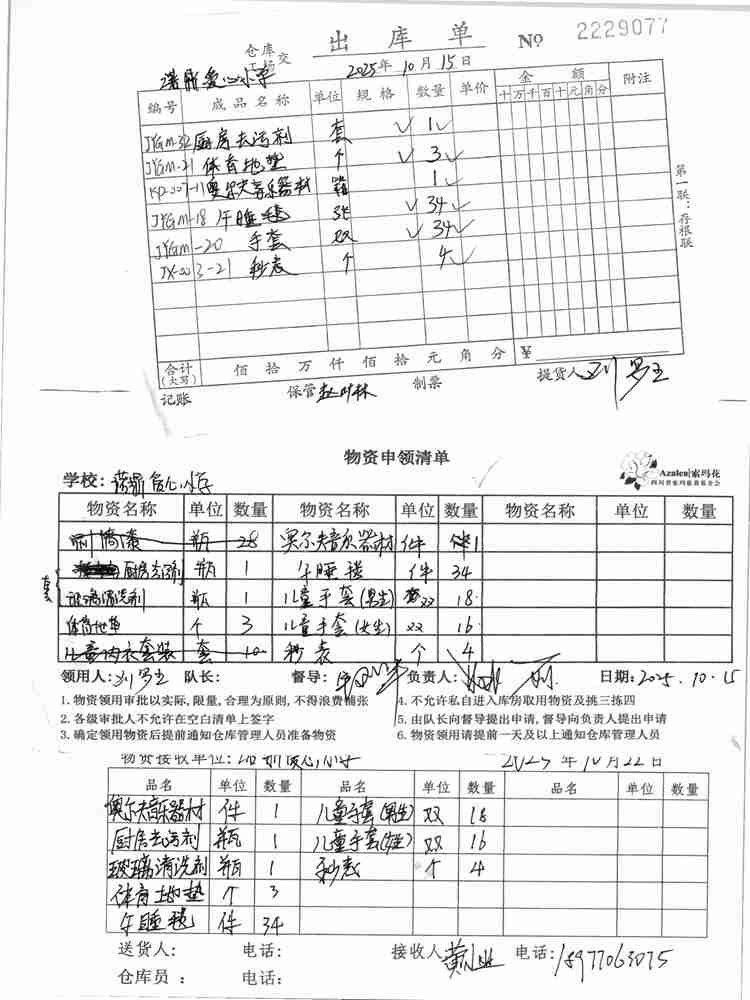 仓库
工场 交
出 库 单
№ 2229077
2025年 10月 15日
编号 成品名称 单位 规格 数量 单价 金额 附注
十万千百十元角分
JYGM-32 厨房去污剂 套 1
JYGM-21 体育地垫 个 3
KP-007-11 奥尔夫音乐器材 1
JYGM-18 午睡毯 34
JYGM-20 手套 双 34
JX-003-21 秒表 个 4
第一联：存根联
合计(大写) 佰 拾 万 仟 佰 拾 元 角 分 ¥
记账 保管 制票 提货人
物资申领清单
Azalea|索玛花
四川省索玛慈善基金会
学校： 爱心小学
物资名称 单位 数量 物资名称 单位 数量 物资名称 单位 数量
瓶 28 奥尔夫音乐器材 件 1
厨房去污剂 瓶 1 午睡毯 件 34
玻璃清洗剂 瓶 1 儿童手套(男生) 双 18
体育地垫 个 3 儿童手套(女生) 双 16
儿童内衣套装 套 10 秒表 个 4
领用人： 队长： 督导： 负责人： 日期：2025.10.15
1. 物资领用审批以实际,限量,合理为原则,不得浪费铺张
4. 不允许私自进入库房取用物资及挑三拣四
2. 各级审批人不允许在空白清单上签字
5. 由队长向督导提出申请,督导向负责人提出申请
3. 确定领用物资后提前通知仓库管理人员准备物资
6. 物资领用请提前一天及以上通知仓库管理人员
物资接收单位： 爱心小学 2025年10月22日
品名 单位 数量 品名 单位 数量 品名 单位 数量
奥尔夫音乐器材 件 1 儿童手套(男生) 双 18
厨房去污剂 瓶 1 儿童手套(女生) 双 16
玻璃清洗剂 瓶 1 秒表 个 4
体育地垫 个 3
午睡毯 件 34
送货人： 电话： 接收人 电话：18977063075
仓库员： 电话：